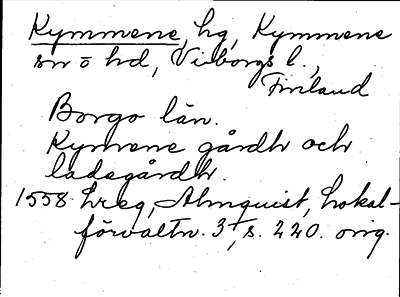 Kymmene, hg, Kymmene
sn o hd, Viborgs l.,
Finland
Borgo län.
Kymene gårdh och
ladegårdh.
1558 hreg, Almquist, Lokal-
förvaltn. 3, s. 220. orig.